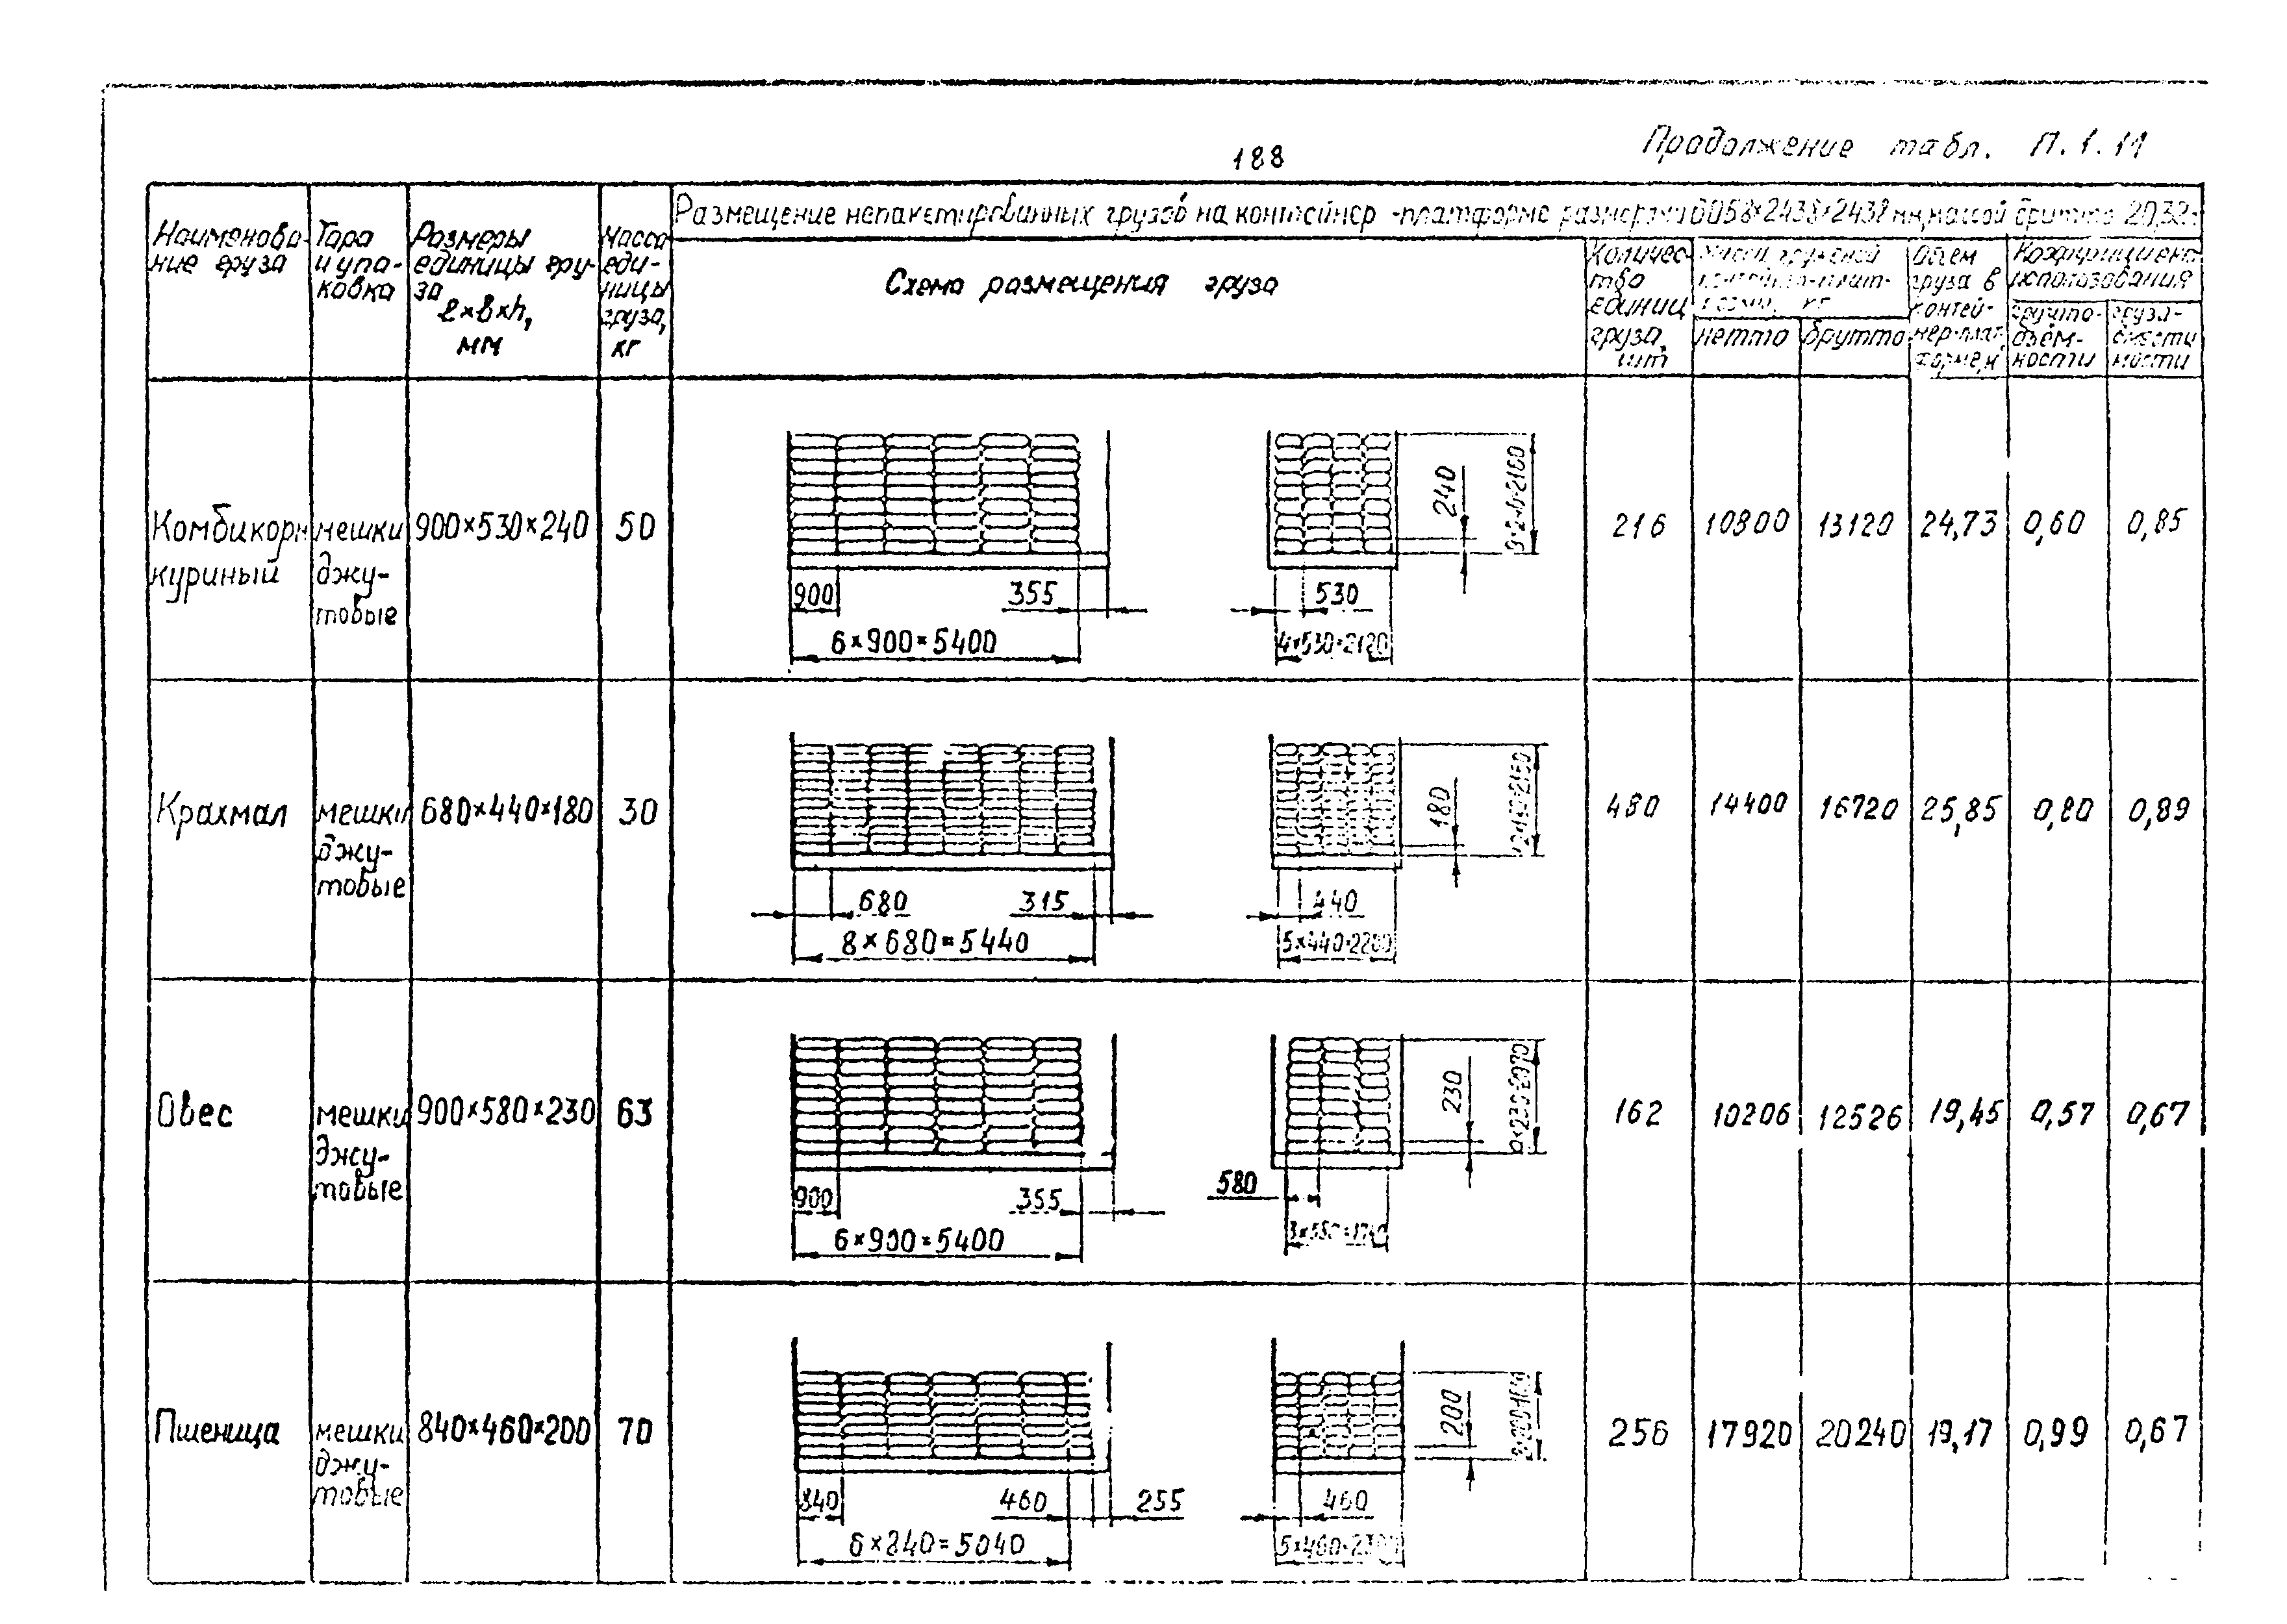 188
Продолжение табл. П.1.11
Размещение непакетированных грузов на контейнер-платформе размерами 6058×2438×2438 мм, массой брутто 20,32т
Наименова-
ние груза
Тара
и упа-
ковка
Размеры
единицы гру-
за
l×b×h,
мм
Масса
еди-
ницы
груза,
кг
Схема размещения груза
Количес-
тво
единиц
груза,
шт
Масса груженой
контейнер-плат-
формы, кг
нетто
брутто
Объем
груза в
контей-
нер-плат-
форме, м
Коэффициент
использования
грузпо-
дъём-
ности
грузо-
вмести
мости
Комбикорм
куриный
мешки
джу-
товые
900×530×240
50
900
355
6×900=5400
530
4×530=2120
240
9×240=2160
216
10800
13120
24,73
0,60
0,85
Крахмал
мешки
джу-
товые
680×440×180
30
680
315
8×680=5440
440
5×440=2200
180
12×180=2160
480
14400
16720
25,85
0,80
0,89
Овес
мешки
джу-
товые
900×580×230
63
900
355
6×900=5400
580
3×580=1740
230
9×230=2070
162
10206
12526
19,45
0,57
0,67
Пшеница
мешки
джу-
товые
840×460×200
70
840
460
255
6×840=5040
460
5×460=2300
200
256
17920
20240
19,17
0,99
0,67